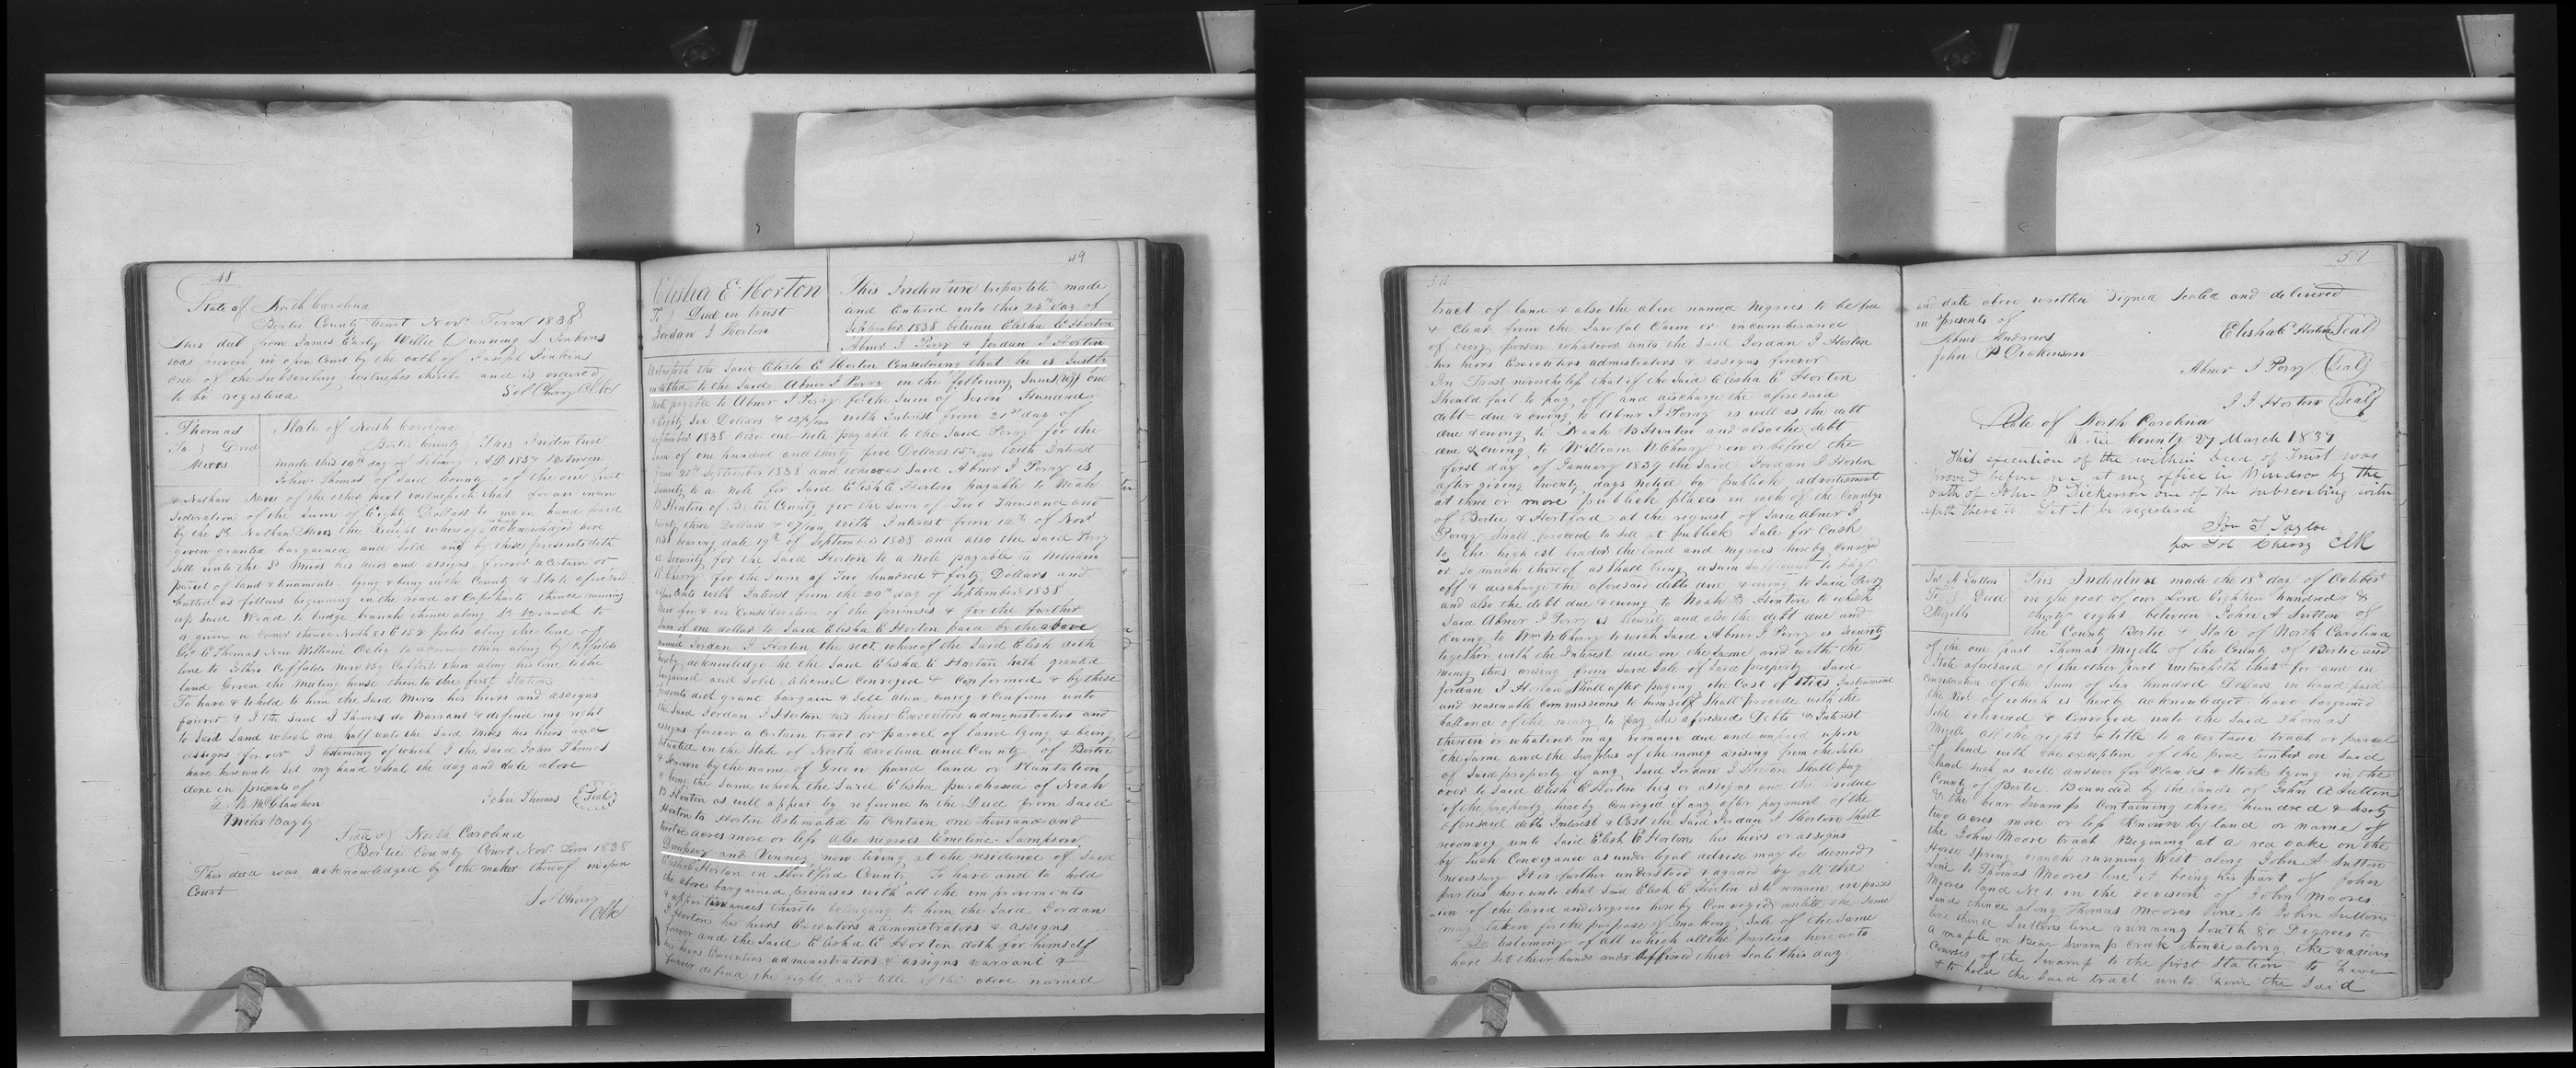 48
State of North Carolina
Bertie County Court Nov. Term 1838
This deed from James Early Willie Dunning to Jenkins
was proven in open Court by the oath of Joseph Jenkins
one of the Subscribing witnesses thereto and is ordered
to be registered
Sol Cherry Clk
Thomas
To } Deed
Miers
State of North Carolina
Bertie County } This Indenture
made this 10th day of February AD 1837 between
John Thomas of Said County of the one part
& Nathan Miers of the other part witnesseth that for an in con
sideration of the Sum of Eighty Dollars to me in hand paid
by the Sd Nathan Miers the receipt whereof is acknowledged have
given granted bargained and Sold and by these presents doth
Sell unto the Sd Miers his heirs and assigns forever a certain or
parcel of land & tenaments lying & being in the County & State aforesaid
butted as follows beginning in the road at Capeharts thence running
up Said Road to bridge branch thence along Sd Branch to
a gum a corner thence North 81 E 152 poles along the line of
Geo C Thomas Now William
line to
land Given the Meeting house then to the first Station
To have & to hold to him the Said Miers his heirs and assigns
forever & I the Said J Thomas do Warrant & defend my right
to Said Land which one half unto the Said Miers his heirs and
assigns forever I testamony of which I the Said John Thomas
have hereunto Set my hand & Seal the day and date above
done in presents of
John Thomas (Seal)
McGlawhon
Miles Bazly
State of North Carolina
Bertie County Court Nov. Term 1838
This deed was acknowledged by the maker thereof in open
Court
Sol Cherry
Clk
49
Elisha E Horton
To } Deed in trust
Jordan J Horton
This Indenture tripartate made
and Entered into this 24th day of
September 1838 between Elisha E Horton
Abner J Perry & Jordan J Horton
Witnesseth the Said Elisha E Horton Considering that he is Justly
indetted to the Said Abner J Perry in the following Sums (to wit) one
note payable to Abner J Perry for the Sum of Seven Hundred
& Eighty Six Dollars & 12/100 with Interest from 21st day of
September 1838 Also one note payable to the Said Perry for the
Sum of one hundred and thirty five Dollars 15/100 with Interest
from 21st September 1838 and whereas Said Abner J Perry is
Security to a note for Said Elish E Horton payable to Noah
B Hinton of Bertie County for the Sum of Two Thousand and
twenty three Dollars & 07/100 with Interest from 12th of Nov.
1838 bearing date 19th of September 1838 and also the Said Perry
is Security for the Said Horton to a Note payable to William
W Cherry for the Sum of Two hundred & forty Dollars and
Cents with Interest from the 20th day of September 1838
Now for & in Consideration of the primises & for the further
Sum of one dollar to Said Elisha E Horton paid by the above
named Jordan J Horton the rect. whereof the Said Elish doth
hereby acknowledge he the Said Elisha E Horton hath granted
bargained and Sold aliened Conveyed & Confirmed & by these
presents doth grant bargain & Sell alien Convey & Confirm unto
the Said Jordan J Horton his heirs Executors administrators and
assigns forever a Certain tract or parcel of land lying & being
situated in the State of North Carolina and County of Bertie
& Known by the name of Green pond land or Plantation
& being the Same which the Said Elisha purchased of Noah
B Hinton as will appear by refrence to the Deed from Said
Hinton to Horton Estimated to Contain one thousand and
twelve acres more or less also negroes Emeline Sampson
Dempsey and Vinney now living at the residence of Said
Elisha E Horton in Hertford County To have and to hold
the above bargained primises with all the improvements
& appertinances thereto belonging to him the Said Jordan
J Horton his heirs Executors administrators & assigns
forever and the Said Elisha E Horton doth for himself
his heirs Executors administrators & assigns warrant &
forever defend the right and title of the above named
50
tract of land & also the above named Negroes to be free
& Clear from the Lawful Claim or incumberance
of every person whatever unto the Said Jordan J Horton
his heirs Executors admistrators & assigns forever
In Trust nevertheless that if the Said Elisha E Horton
Should fail to pay off and discharge the aforesaid
debt due & owing to Abner J Perry as well as the debt
due & owing to Noah B Hinton and also the debt
due & owing to William W Cherry on or before the
first day of January 1839 the Said Jordan J Horton
after giving twenty days Noted by publick advertisment
at three or more publick places in each of the Countys
of Bertie & Hertford at the request of Said Abner J
Perry Shall proceed to Sell at publick Sale for Cash
to the highest bidder the land and negroes hereby conveyed
or so much thereof as Shall bring a Sum Sufficient to pay
off & discharge the aforesaid debts due & owing to Said Perry
and also the debt due & owing to Noah B Hinton to which
Said Abner J Perry is Security and also the debt due and
Owing to Wm W Cherry to wich Said Abner J Perry is Security
together with the Interest due on the Same and with the
money thus arising from Said Sale of Said property Said
Jordan J Horton Shall after paying the Cost of this Instrument
and reasonable Commissions to himself Shall proceede with the
ballance of the money to pay the aforesaid Debts & Interest
therein or whatever may remain due and unpaid upon
the Same and the Surplus of the money arising from the Sale
of Said property if any Said Jordan J Horton Shall pay
over to Said Elish E Horton his or assigns and the residue
of the property hereby Conveyed if any after payment of the
aforesaid debts Interest & Cost the Said Jordan J Horton Shall
reconvey unto Said Elish E Horton his heirs or assigns
by Such Conveyance as under legal advise may be deemed
necessary It is further understood & agreed by all the
parties here unto that Said Elish E Horton is to remain in posses
sion of the land and negroes hereby Conveyed untill the Same
may taken for the purpose of making Sale of the Same
In testimony of all which all the parties hereunto
have Set their hands and affixed their Seals this day
51
and date above written Signed Sealed and delivered
in presents of
Abner Andrews
John P Dickinson
Elisha E Horton (Seal)
Abner J Perry (Seal)
J J Horton (Seal)
State of North Carolina
Bertie County 27 March 1839
This execution of the within Deed of Trust was
proved before me at my office in Windsor by the
oath of John P Dickerson one of the Subscribing witn
esseth thereto Let it be registered
Jon S Tayloe
for Sol Cherry Clk
Jn. A Sutton
To } Deed
Mizells
This Indenture made the 18th day of October
in the year of our Lord Eighteen hundred &
thirty eight between John A Sutton of
the County Bertie & State of North Carolina
of the one part Thomas Mizells of the County of Bertie and
State aforesaid of the other part witnesseth that for and in
Consideration of the Sum of Six hundred Dollars in hand paid
the Rect of which is hereby acknowledged have bargained
Sold delivered & Conveyed unto the Said Thomas
Mizells all the right & title to a certain track or parcel
of land with the exception of the pine timber on Said
land Such as will answer for Planks & Stock lying in the
County of Bertie Bounded by the lands of John A Sutton
& the bear Swamp Containing three hundred & Sixty
two acres more or less Known by land or name of
the John Moore track Begining at a red oake on the
Horse Spring branch running West along John A Sutton
line to Thomas Moores line it being his part of John
Moores land No 1. in the devision of John Moores
land thence along Thomas Moores line to John Suttons
line thence Suttons line running South 80 Degrees to
a maple on Bear Swamp Creek thence along the various
Courses of the Swamp to the first Station to have
& to hold the Said tract unto him the Said